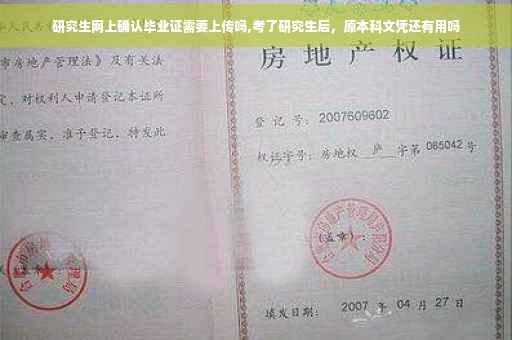 研究生网上确认毕业证需要上传吗,考了研究生后，原本科文凭还有用吗
市房地产管理法》及有关法
定，对权利人申请登记本证所
审查属实，准予登记，特发此
房地产权
登 记 号：2007609602
权证字号：房地权 庐 字第 065042 号
(盖章)：
填发日期： 2007 年 04 月 27 日